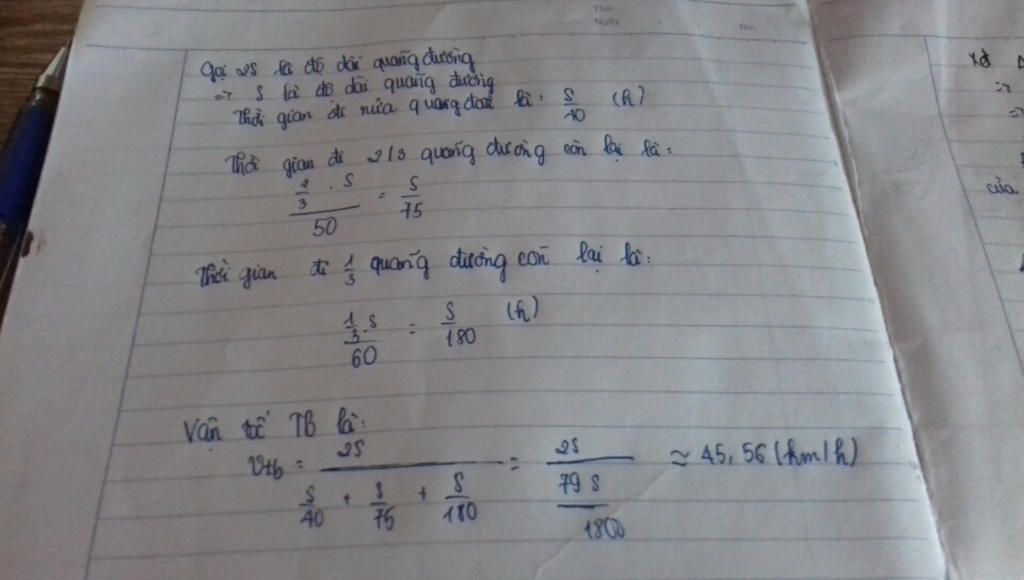 Thứ
Ngày No.
Gọi 2S là độ dài quãng đường
=> S là độ dài quãng đường
Thời gian đi nửa quãng đầu là: S/40 (h)
Thời gian đi 2/3 quãng đường còn lại là:
(2/3 . S)/50 = S/75
Thời gian đi 1/3 quãng đường còn lại là:
(1/3 . S)/60 = S/180 (h)
Vận tốc TB là:
Vtb = 2S/(S/40 + S/75 + S/180) = 2S/(79S/1800) ≈ 45,56 (km/h)
xét
=>
=>
của